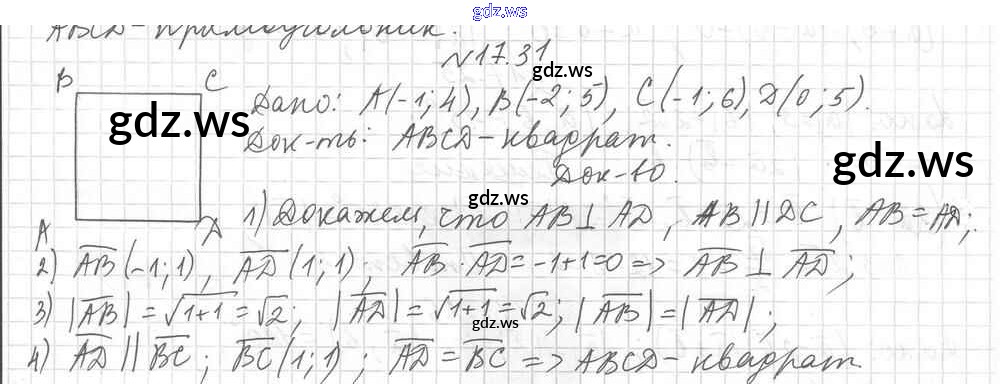 gdz.ws
ABCD - прямоугольник.
№17.31
B C
gdz.ws
Дано: A(-1; 4), B(-2; 5), C(-1; 6), D(0; 5).
gdz.ws
Док-ть: ABCD - квадрат.
gdz.ws
Док-во.
gdz.ws
A Д
1) Докажем, что AB ⊥ AD, AB || DC, AB = AD;
2) A̅B̅(-1; 1), A̅D̅(1; 1); A̅B̅ · A̅D̅ = -1+1=0 => A̅B̅ ⊥ A̅D̅;
3) |A̅B̅| = √1+1 = √2; |A̅D̅| = √1+1 = √2; |A̅B̅| = |A̅D̅|;
gdz.ws
4) A̅D̅ || B̅C̅; B̅C̅(1; 1); A̅D̅ = B̅C̅ => ABCD - квадрат.